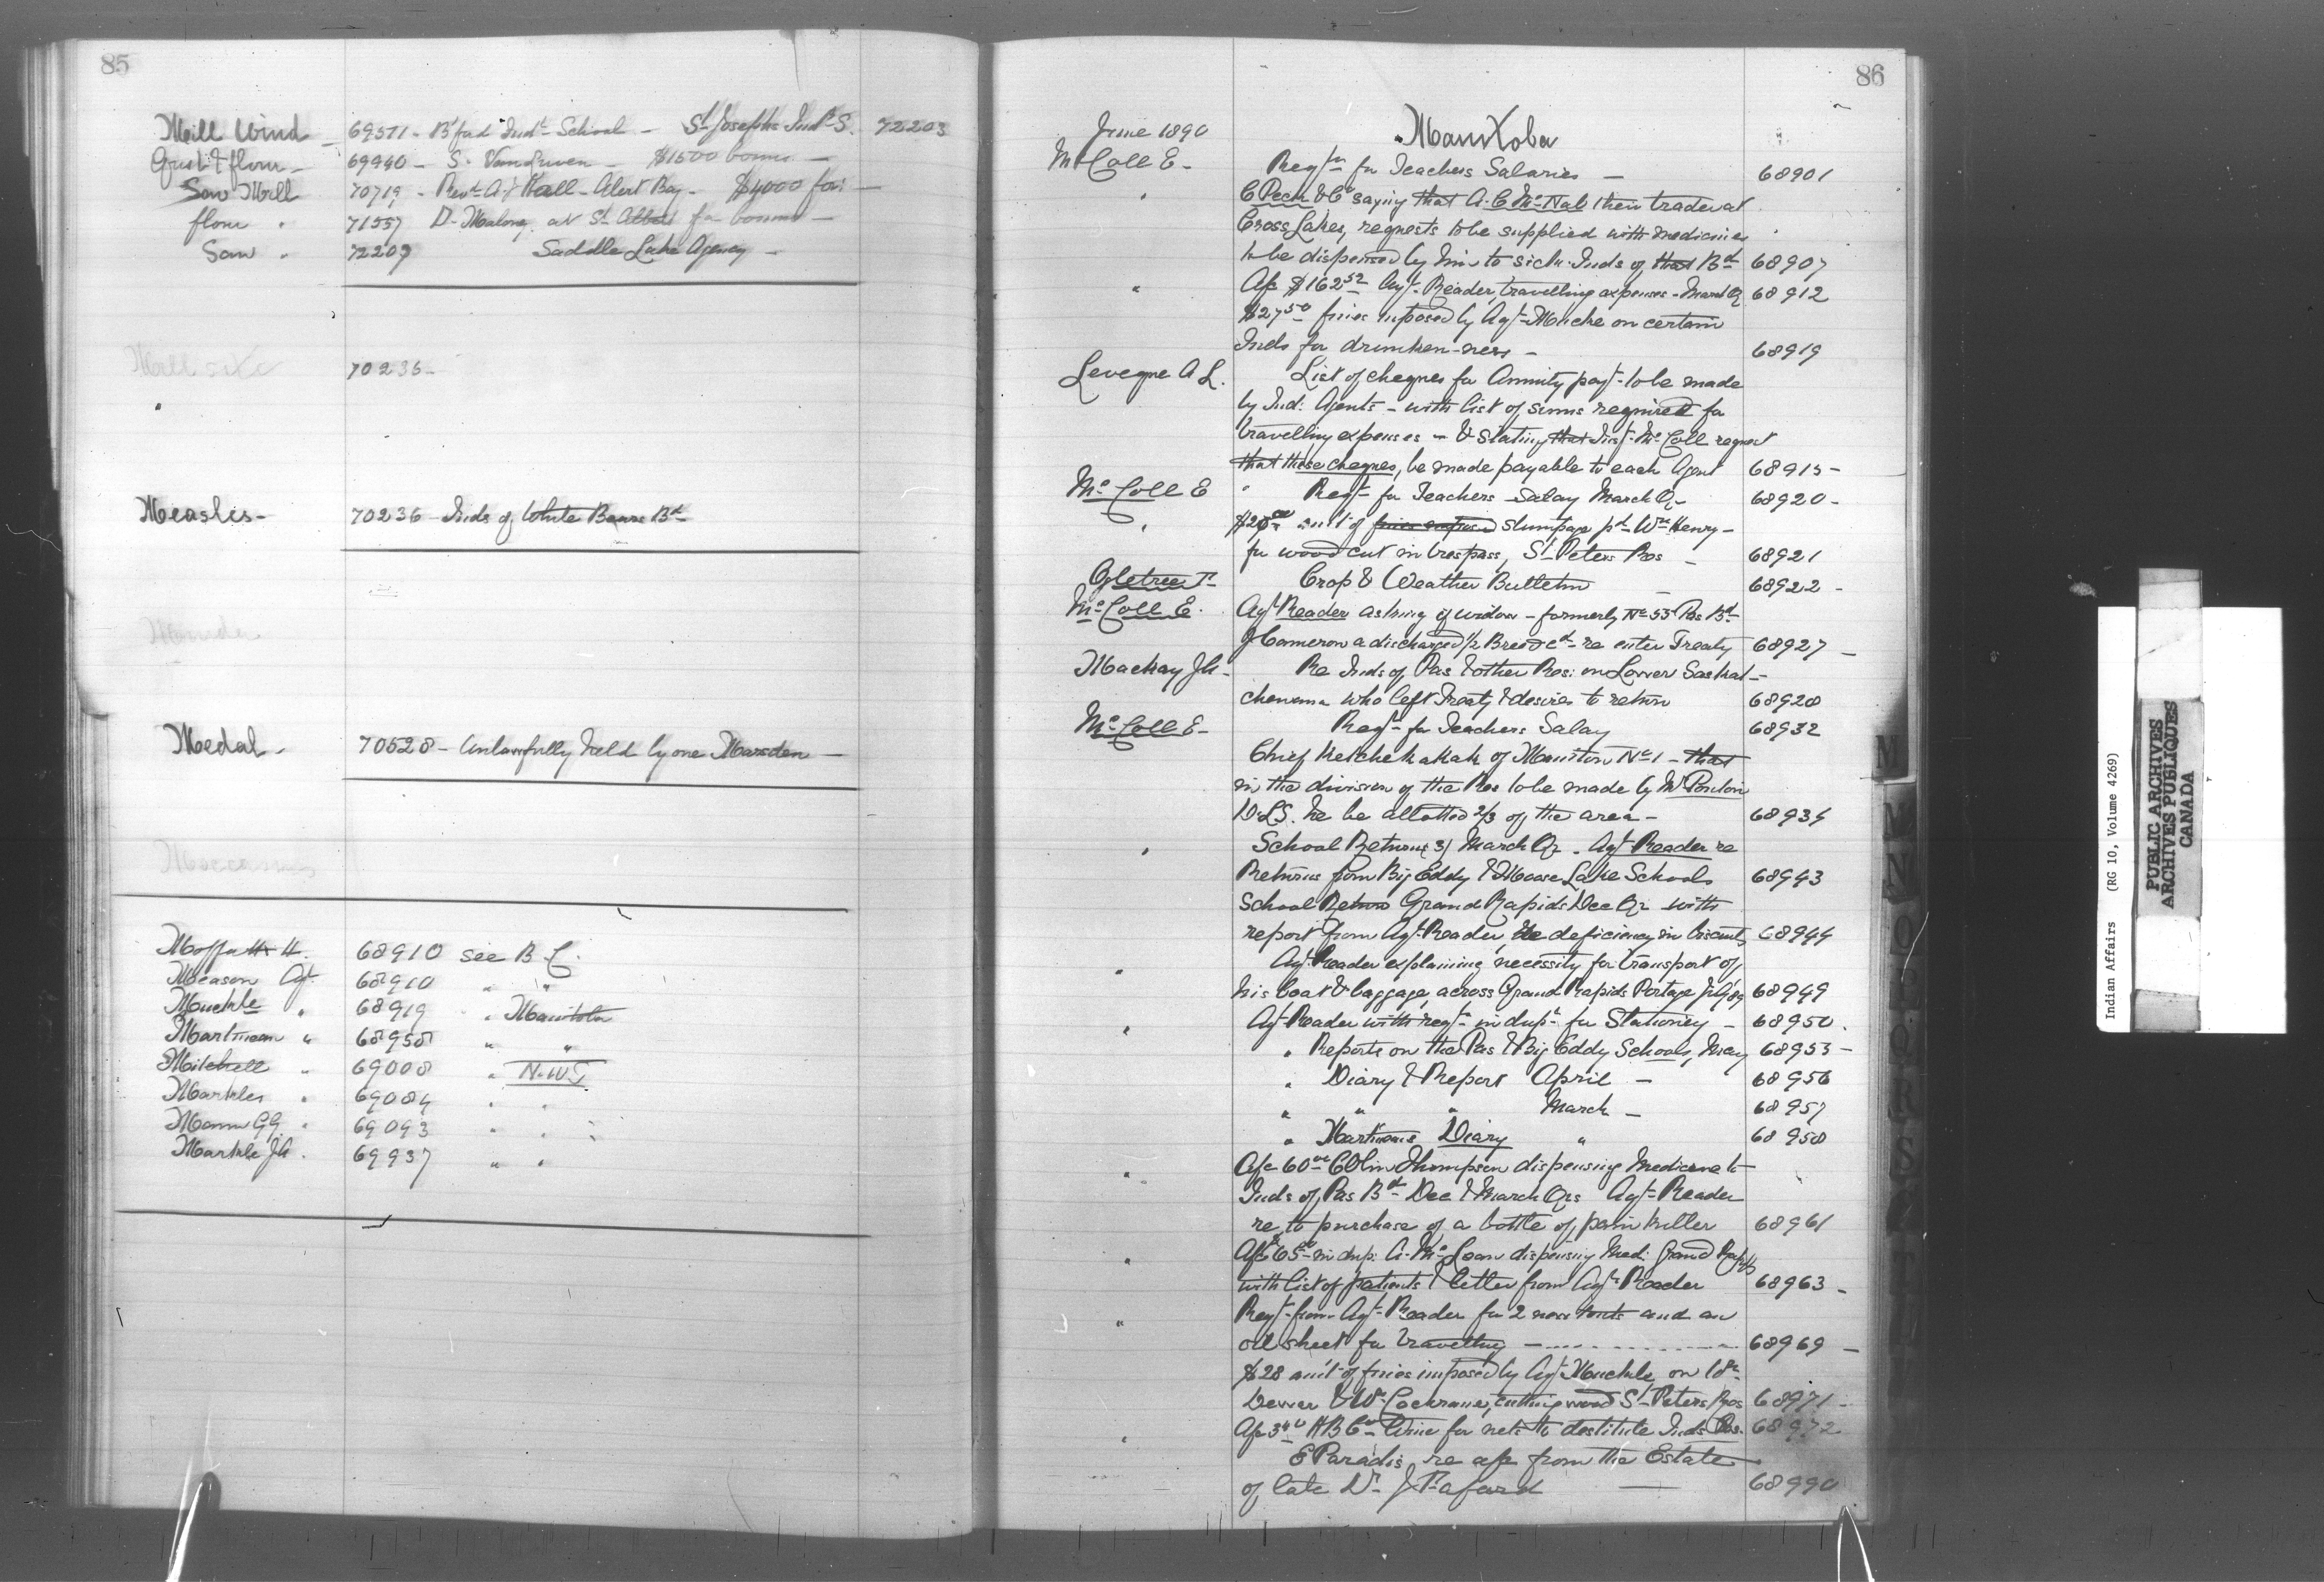 85
Mill Wind - 69371 - B'ford Indl School - St Josephs Indl S. 72203
Grist & flour - 69940 - S. - $1500 bonus -
Saw Mill 70719 - Revd A. J Hall - Alert Bay - $4000 for -
flour " 71557 D. Malony at St Albert for bonus -
Saw " 72209 Saddle Lake Agency -
Mill site 70236 -
Measles - 70236 - Inds of White Bears Bd
Medal - 70528 - Unlawfully held by one Marsden -
Moffatt H. 68910 see B C.
Measom Agt. 68910 " "
Muckle " 68919 " Manitoba
Martineau " 68958 " "
Mitchell " 69008 " N.W.T
Markles " 69084 " "
Mann G.G. " 69093 " "
Markle J.A. 69937 " "
86
June 1890 Manitoba
McColl E - Reqn for Teachers Salaries - 68901
" C Pech & Co saying that A. C. McNab their trader at
Cross Lakes, requests to be supplied with medicines
to be dispensed by him to sick Inds of that Bd 68907
" A/c $162.52 Agt Reader, travelling expenses - March Qr 68912
$27.50 fines imposed by Agt Muckle on certain
Inds for drunken-ness - 68919
Leveque A L. List of cheques for Annuity payt to be made
by Ind: Agents - with list of sums required for
travelling expenses - & stating that Inst. McColl request
that these cheques, be made payable to each Agent 68915 -
McColl E " Reqt for Teachers Salary March Qr 68920 -
" amt of fines imposed stumpage pd Wm Henry -
for wood cut in trespass, St Peters Res - 68921
Ogletree F. Crop & Weather Bulletin - 68922 -
McColl E. Agt Reader asking if widow - formerly No 53 Pas Bd
J Cameron a discharged 1/2 Breed cd re enter Treaty 68927 -
Mackay J.A - Re Inds of Pas & other Res: on Lower Saskat-
chewan who left Treaty & desires to return 68928
McColl E - Reqt for Teachers Salary 68932
Chief Ketchekakak of Moniston No 1 - that
in the division of the Res to be made by Mr Ponton
D.L.S. he be allotted 2/3 of the area - 68934
" School Returns (3) March Qr. Agt Reader re
Returns from Big Eddy & Moose Lake Schools 68943
School Return Grand Rapids Dec Qr with
report from Agt Reader, re deficiency in biscuits 68944
" Agt Reader explaining necessity for transport of
his boat & baggage, across Grand Rapids Portage 68949
" Agt Reader with reqt in dupt for Stationery - 68950.
" Reports on the Pas & Big Eddy Schools, May 68953 -
" Diary & Report April - 68956
" " " March - 68957
" Martineaus Diary " 68958
" A/c 60.00 Colin Thompson dispensing Medicine to
Inds of Pas Bd Dec & March Qrs Agt Reader
re to purchase of a bottle of pain killer 68961
" A/c 65.00 in dup: A. McLean dispensing Med: Grand Rapids
with list of patients & letter from Agt Reader 68963 -
" Reqt from Agt Reader for 2 new tents and an
oil sheet for travelling - 68969 -
$28 amt of fines imposed by Agt Muckle, on
Dewer & Wm Cochrane, cutting wood St Peters Res 68971 -
" A/c H B Co twine for nets to destitute Inds Pas. 68972
E Paradis re a/c from the Estate
of late Dr J. Tafard - 68990
M
N
O
P
Q
R
S
T
Indian Affairs (RG 10, Volume 4269)
PUBLIC ARCHIVES
ARCHIVES PUBLIQUES
CANADA